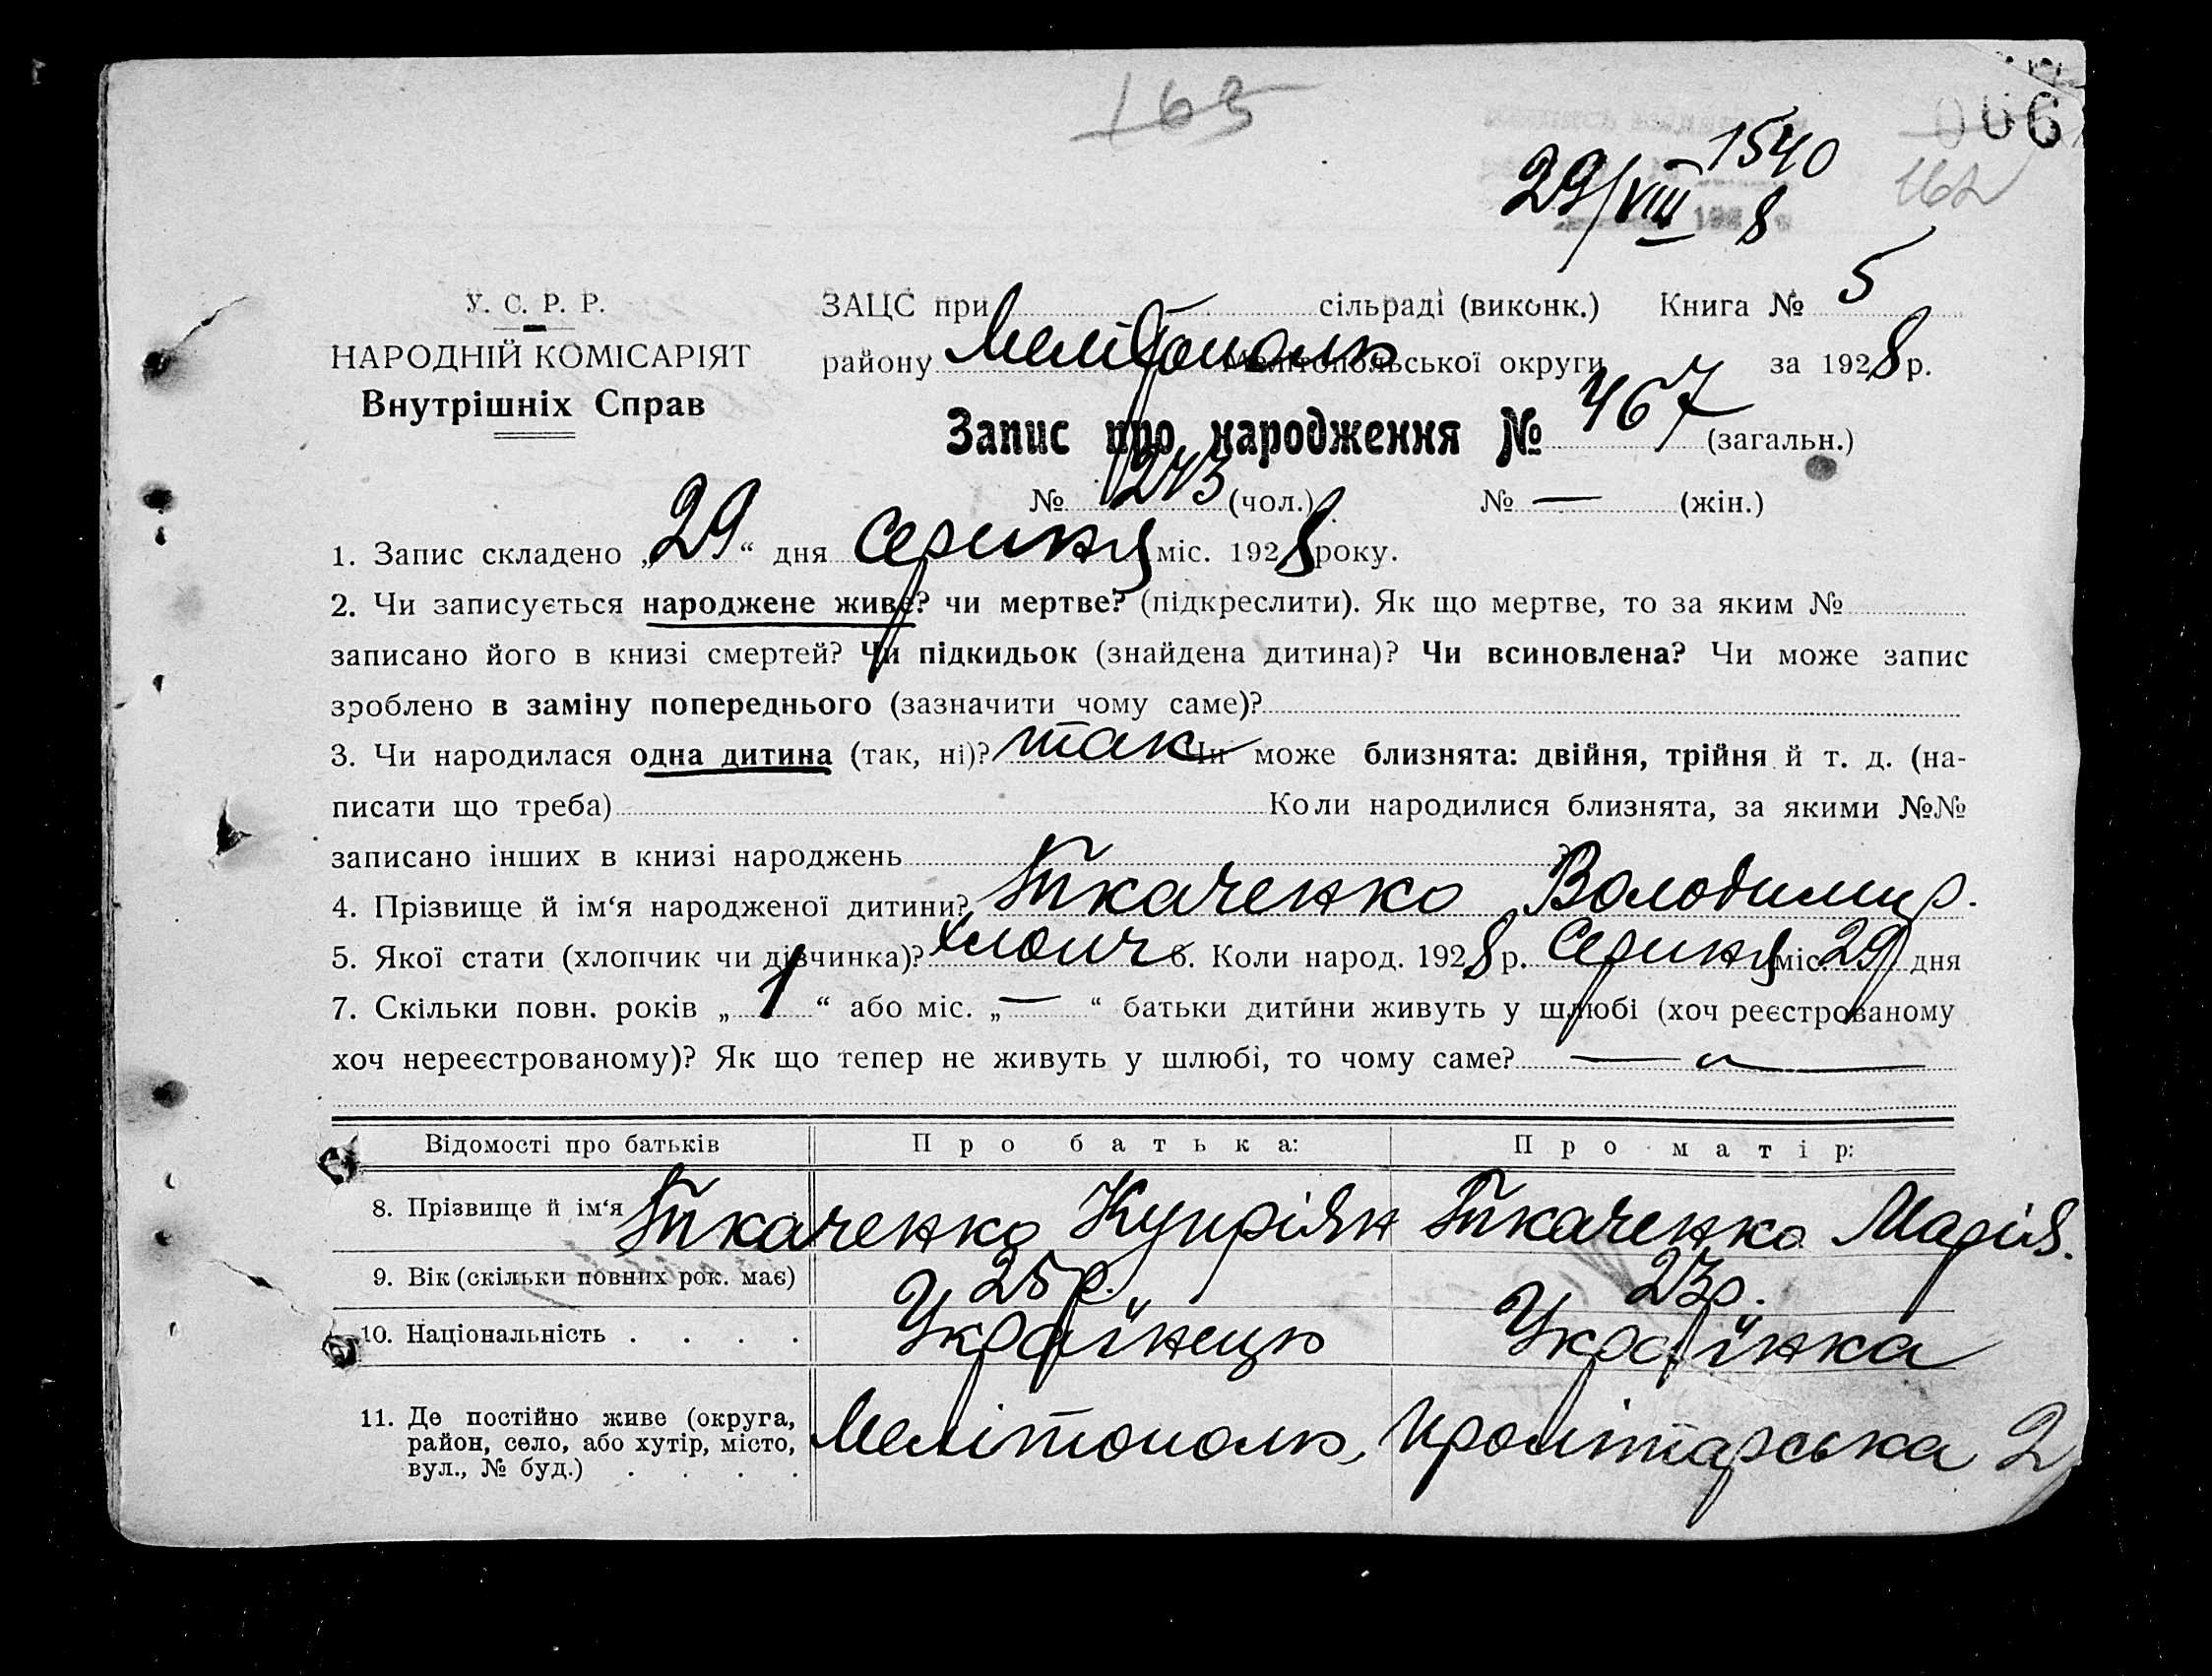 163
066
162
1540
29/VIII 1928
У. С. Р. Р.
НАРОДНІЙ КОМІСАРІЯТ
Внутрішніх Справ
ЗАЦС при сільраді (виконк.) Книга № 5
району Мелітополь Мелітопольської округи за 1928 р.
Запис про народження № 467 (загальн.)
№ 243 (чол.) № — (жін.)
1. Запис складено „29“ дня Серпня міс. 1928 року.
2. Чи записується народжене живе? чи мертве? (підкреслити). Як що мертве, то за яким №
записано його в книзі смертей? Чи підкидьок (знайдена дитина)? Чи всиновлена? Чи може запис
зроблено в заміну попереднього (зазначити чому саме)?
3. Чи народилася одна дитина (так, ні)? так Чи може близнята: двійня, трійня й т. д. (на-
писати що треба) Коли народилися близнята, за якими №№
записано інших в книзі народжень ?
4. Прізвище й ім‘я народженої дитини? Ткаченко Володимир.
5. Якої стати (хлопчик чи дівчинка)? хлопч 6. Коли народ. 1928 р. Серпня міс. 29 дня
7. Скільки повн. років „1“ або міс. „—“ батьки дитини живуть у шлюбі (хоч реєстрованому
хоч нереєстрованому)? Як що тепер не живуть у шлюбі, то чому саме? — „ —
Відомості про батьків Про батька: Про матір:
8. Прізвище й ім‘я Ткаченко Купріян Ткаченко Марія.
9. Вік (скільки повних рок. має) 25 р. 23 р.
10. Національність . . . . Українець Українка
11. Де постійно живе (округа,
район, село, або хутір, місто,
вул., № буд.) . . . . Мелітополь, Пролітарська 2